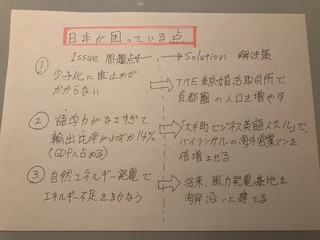 日本が困っている点
Issue 問題点 Solution 解決策
① 少子化に歯止めが
かからない
THE 東京婚活取引所で
首都圏の人口を増やす
② 語学力がなさすぎて
輸出比率がわずか14%
(GDPに占める)
「大手町ビジネス英語スクール」で、
バイリンガルの海外営業マンを
倍増させる
③ 自然エネルギー発電で
エネルギー不足をまかなう
将来、風力発電基地を
海岸沿いに建てる